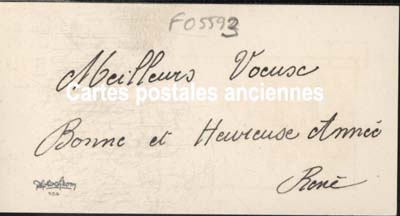 F05593
Meilleurs Voeux
Cartes postales anciennes
Bonne et Heureuse Année
René